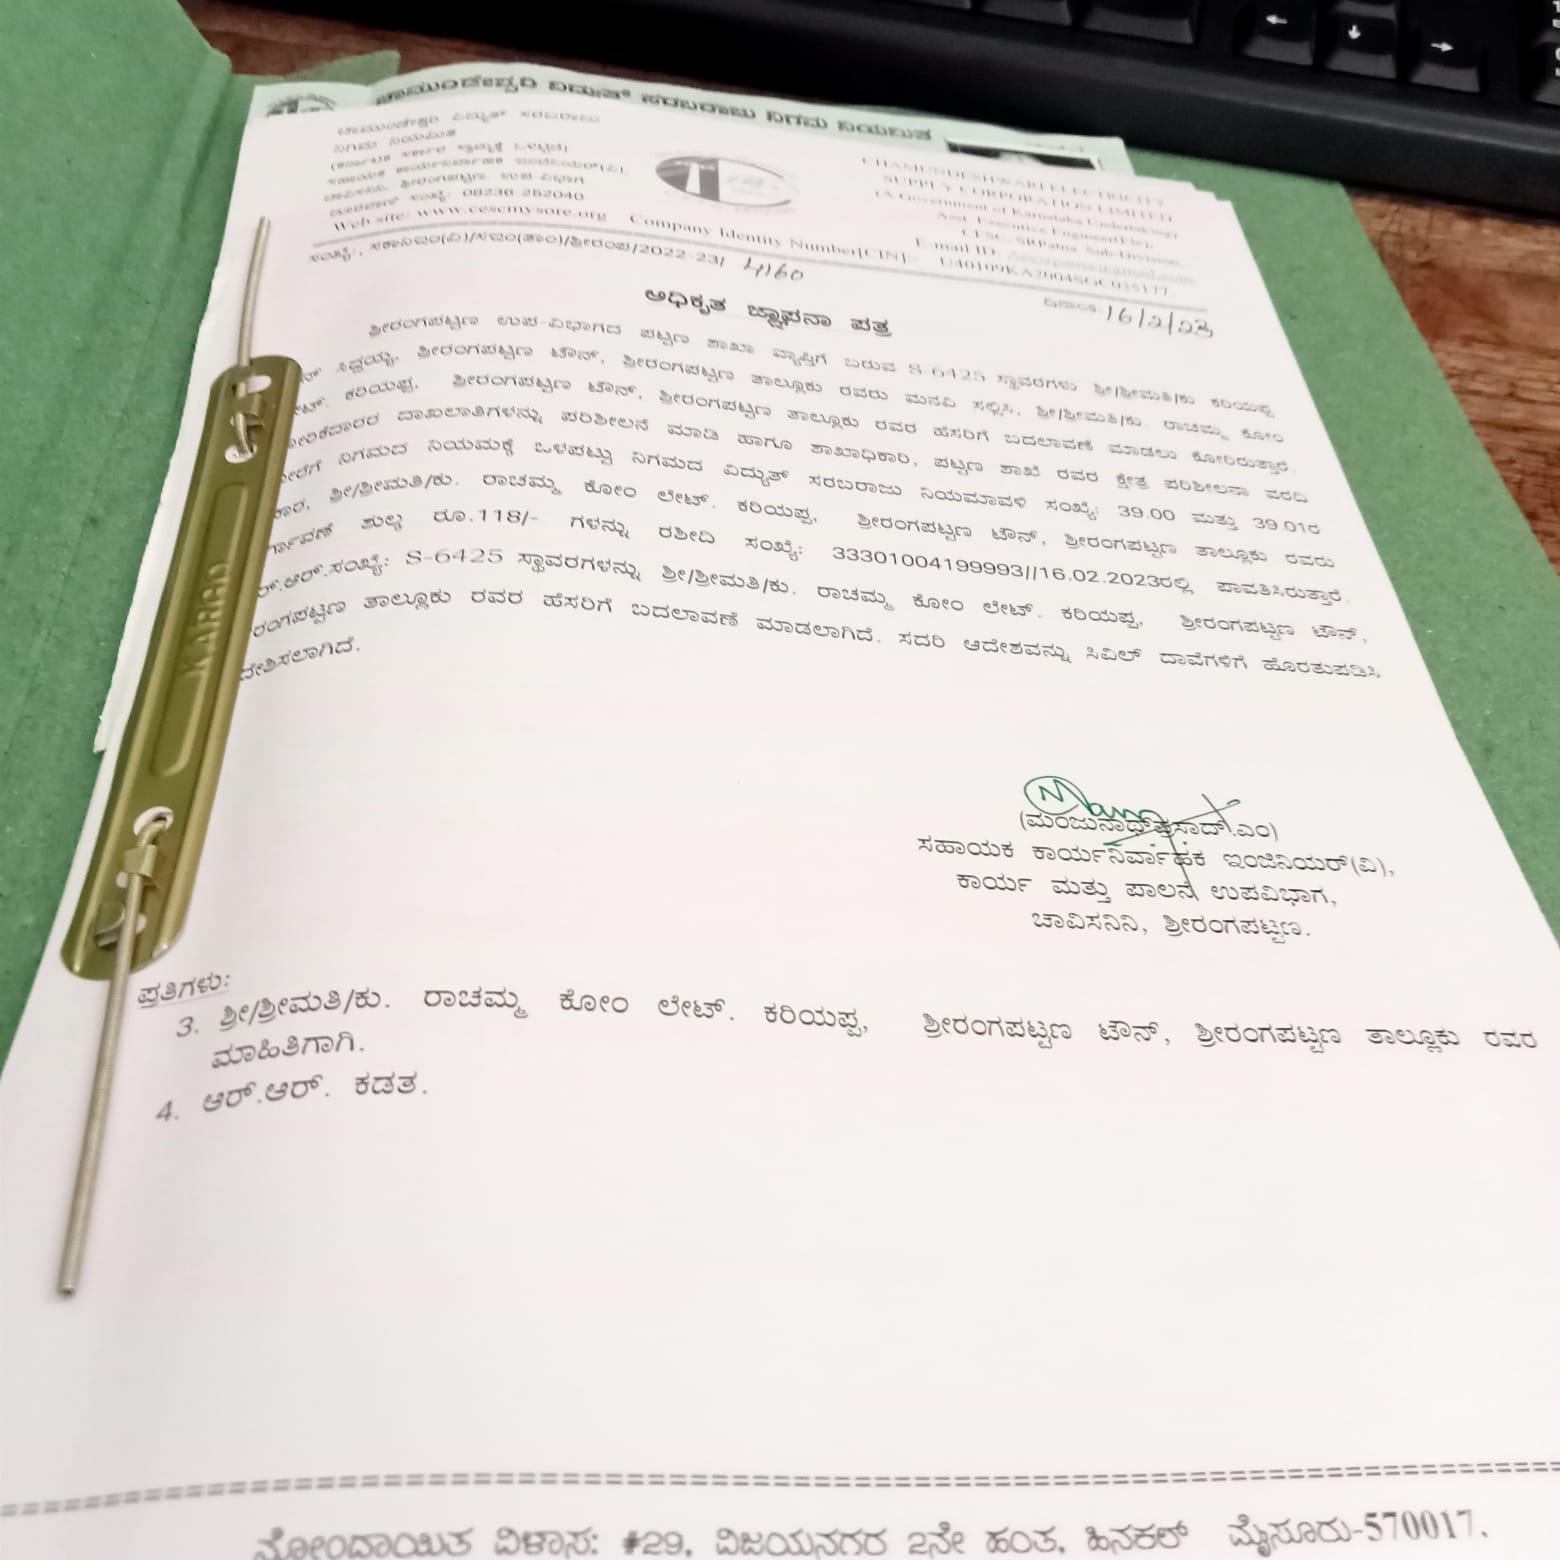 ಚಾಮುಂಡೇಶ್ವರಿ ವಿದ್ಯುತ್ ಸರಬರಾಜು ನಿಗಮ ನಿಯಮಿತ
ಚಾಮುಂಡೇಶ್ವರಿ ವಿದ್ಯುತ್ ಸರಬರಾಜು
ನಿಗಮ ನಿಯಮಿತ
(ಕರ್ನಾಟಕ ಸರ್ಕಾರ ಸ್ವಾಮ್ಯಕ್ಕೆ ಒಳಪಟ್ಟಿದೆ)
ಸಹಾಯಕ ಕಾರ್ಯನಿರ್ವಾಹಕ ಇಂಜಿನಿಯರ್(ವಿ),
ಚಾವಿಸನಿನಿ, ಶ್ರೀರಂಗಪಟ್ಟಣ ಉಪ-ವಿಭಾಗ
ದೂರವಾಣಿ ಸಂಖ್ಯೆ: 08236-252040
CHAMUNDESHWARI ELECTRICITY
SUPPLY CORPORATION LIMITED
(A Government of Karnataka Undertaking)
Asst. Executive Engineer(Ele),
CESC, SRPatna Sub-Division,
E-mail ID:
Web site: www.cescmysore.org Company Identity Number[CIN]:- U40109KA2004SGC035177
ಸಂಖ್ಯೆ:, ಸಕಾನಿಇಂ(ವಿ)/ಸಇಂ(ತಾಂ)/ಶ್ರೀರಂಪ/2022-23/ 4160
ದಿನಾಂಕ: 16/2/23
ಅಧಿಕೃತ ಜ್ಞಾಪನಾ ಪತ್ರ
ಶ್ರೀರಂಗಪಟ್ಟಣ ಉಪ-ವಿಭಾಗದ ಪಟ್ಟಣ ಶಾಖಾ ವ್ಯಾಪ್ತಿಗೆ ಬರುವ S-6425 ಸ್ಥಾವರಗಳು ಶ್ರೀ/ಶ್ರೀಮತಿ/ಕು ಕರಿಯಪ್ಪ
ಸಿದ್ದಯ್ಯ, ಶ್ರೀರಂಗಪಟ್ಟಣ ಟೌನ್, ಶ್ರೀರಂಗಪಟ್ಟಣ ತಾಲ್ಲೂಕು ರವರು ಮನವಿ ಸಲ್ಲಿಸಿ, ಶ್ರೀ/ಶ್ರೀಮತಿ/ಕು. ರಾಚಮ್ಮ ಕೋಂ
ಕರಿಯಪ್ಪ, ಶ್ರೀರಂಗಪಟ್ಟಣ ಟೌನ್, ಶ್ರೀರಂಗಪಟ್ಟಣ ತಾಲ್ಲೂಕು ರವರ ಹೆಸರಿಗೆ ಬದಲಾವಣೆ ಮಾಡಲು ಕೋರಿರುತ್ತಾರೆ.
ದಾಖಲಾತಿಗಳನ್ನು ಪರಿಶೀಲನೆ ಮಾಡಿ ಹಾಗೂ ಶಾಖಾಧಿಕಾರಿ, ಪಟ್ಟಣ ಶಾಖೆ ರವರ ಕ್ಷೇತ್ರ ಪರಿಶೀಲನಾ ವರದಿ
ನಿಗಮದ ನಿಯಮಕ್ಕೆ ಒಳಪಟ್ಟು ನಿಗಮದ ವಿದ್ಯುತ್ ಸರಬರಾಜು ನಿಯಮಾವಳಿ ಸಂಖ್ಯೆ: 39.00 ಮತ್ತು 39.01ರ
ಶ್ರೀ/ಶ್ರೀಮತಿ/ಕು. ರಾಚಮ್ಮ ಕೋಂ ಲೇಟ್. ಕರಿಯಪ್ಪ, ಶ್ರೀರಂಗಪಟ್ಟಣ ಟೌನ್, ಶ್ರೀರಂಗಪಟ್ಟಣ ತಾಲ್ಲೂಕು ರವರು
ಶುಲ್ಕ ರೂ.118/- ಗಳನ್ನು ರಶೀದಿ ಸಂಖ್ಯೆ: 33301004199993//16.02.2023ರಲ್ಲಿ ಪಾವತಿಸಿರುತ್ತಾರೆ.
ರ್.ಆರ್.ಸಂಖ್ಯೆ: S-6425 ಸ್ಥಾವರಗಳನ್ನು ಶ್ರೀ/ಶ್ರೀಮತಿ/ಕು. ರಾಚಮ್ಮ ಕೋಂ ಲೇಟ್. ಕರಿಯಪ್ಪ, ಶ್ರೀರಂಗಪಟ್ಟಣ ಟೌನ್,
ರಂಗಪಟ್ಟಣ ತಾಲ್ಲೂಕು ರವರ ಹೆಸರಿಗೆ ಬದಲಾವಣೆ ಮಾಡಲಾಗಿದೆ. ಸದರಿ ಆದೇಶವನ್ನು ಸಿವಿಲ್ ದಾವೆಗಳಿಗೆ ಹೊರತುಪಡಿಸಿ
ದೇಶಿಸಲಾಗಿದೆ.
KARGO
(ಮಂಜುನಾಥ್‌ಪ್ರಸಾದ್.ಎಂ)
ಸಹಾಯಕ ಕಾರ್ಯನಿರ್ವಾಹಕ ಇಂಜಿನಿಯರ್(ವಿ),
ಕಾರ್ಯ ಮತ್ತು ಪಾಲನೆ ಉಪವಿಭಾಗ,
ಚಾವಿಸನಿನಿ, ಶ್ರೀರಂಗಪಟ್ಟಣ.
ಪ್ರತಿಗಳು:
3. ಶ್ರೀ/ಶ್ರೀಮತಿ/ಕು. ರಾಚಮ್ಮ ಕೋಂ ಲೇಟ್. ಕರಿಯಪ್ಪ, ಶ್ರೀರಂಗಪಟ್ಟಣ ಟೌನ್, ಶ್ರೀರಂಗಪಟ್ಟಣ ತಾಲ್ಲೂಕು ರವರ
ಮಾಹಿತಿಗಾಗಿ.
4. ಆರ್.ಆರ್. ಕಡತ.
ನೋಂದಾಯಿತ ವಿಳಾಸ: #29, ವಿಜಯನಗರ 2ನೇ ಹಂತ, ಹಿನಕಲ್ ಮೈಸೂರು-570017.